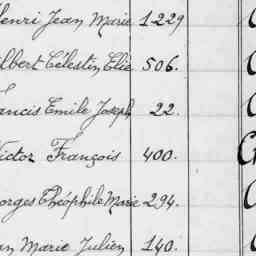 Henri Jean Marie 1229
Albert Célestin Elie 506.
Francis Emile Joseph 22.
Victor François 400.
Georges Théophile Marie 294.
Jean Marie Julien 140.